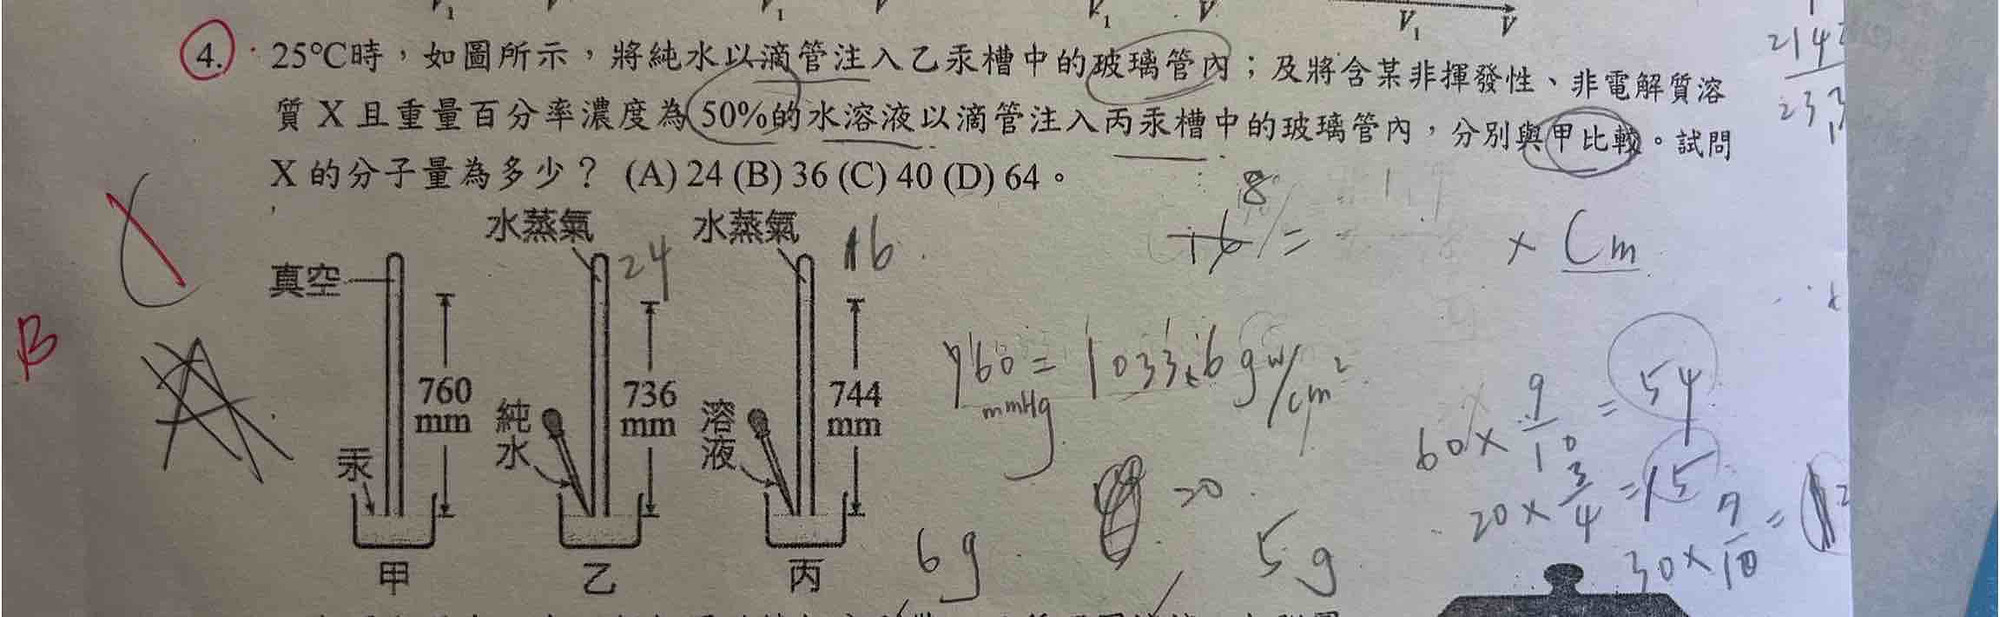 V₁ V V₁ V V₁ V V₁ V
4. 25°C時，如圖所示，將純水以滴管注入乙汞槽中的玻璃管內；及將含某非揮發性、非電解質溶
質 X 且重量百分率濃度為 50%的水溶液以滴管注入丙汞槽中的玻璃管內，分別與甲比較。試問
X 的分子量為多少？ (A) 24 (B) 36 (C) 40 (D) 64。
水蒸氣 水蒸氣
真空
24
16
760 mm
736 mm
744 mm
汞
純水
溶液
甲 乙 丙
B
8
16 =
× Cm
760 mmHg = 1033.6 gw/cm²
60 × 9/10 = 54
20 × 3/4 = 15
=0
6g
5g